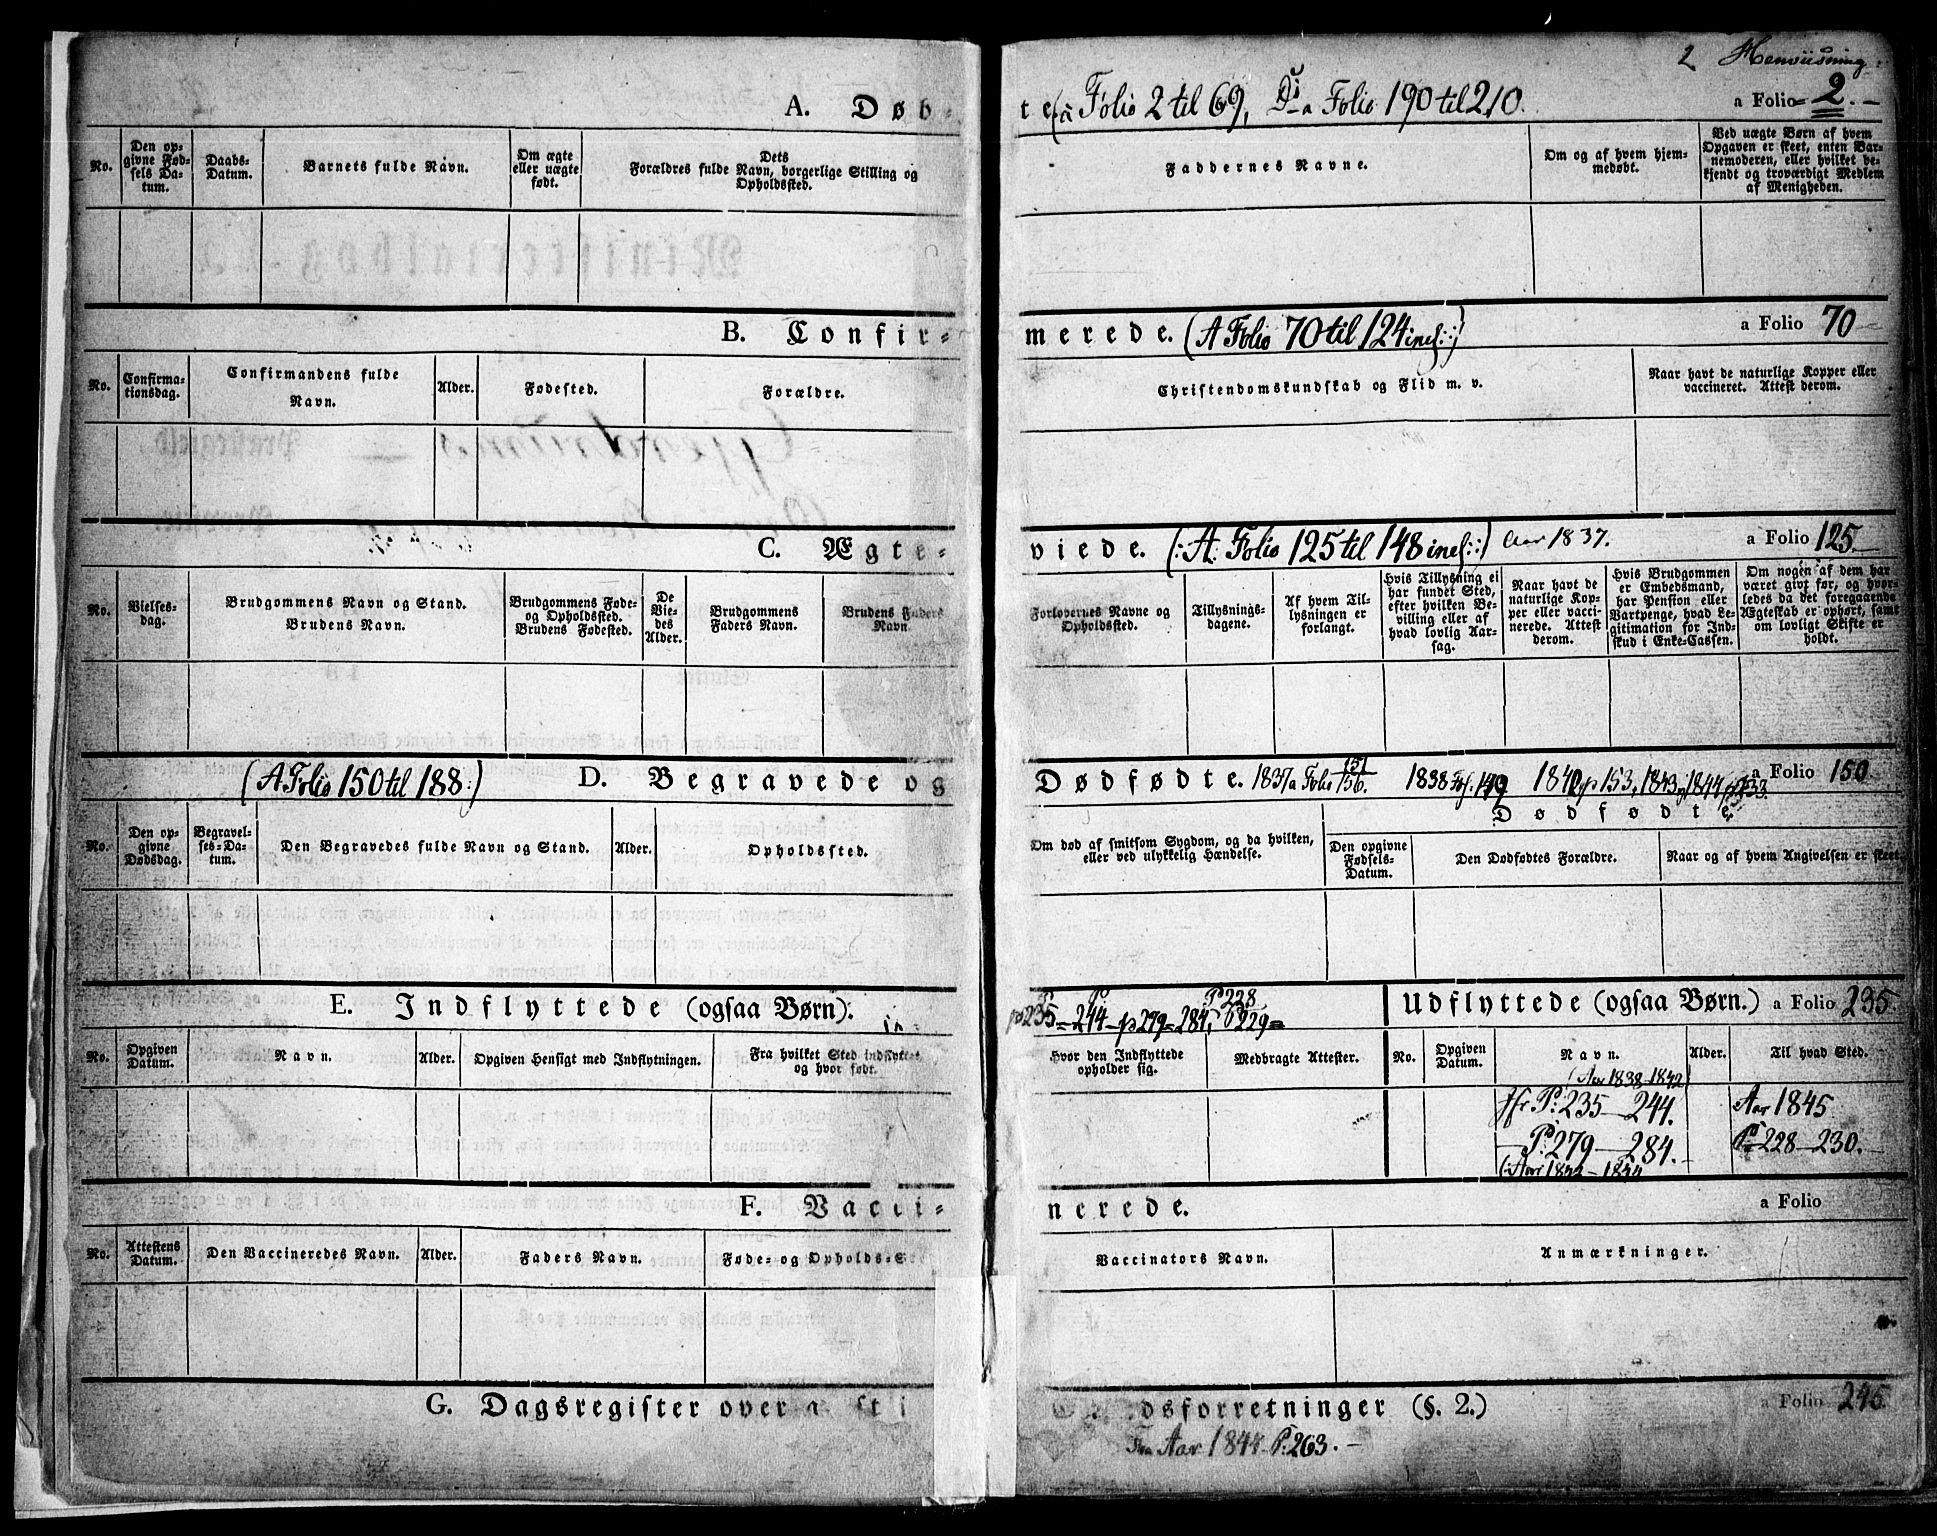 2 Henviisning
A. Døb-
te (a Folio 2 til 69, Di a Folio 190 til 210.
a Folio 2.
No.
Den op-
givne Fød-
sels Da-
tum.
Daabs-
Datum.
Barnets fulde Navn.
Om ægte
eller uægte
født.
Dets
Forældres fulde Navn, borgerlige Stilling og
Opholdssted.
Faddernes Navne.
Om og af hvem hjem-
medøbt.
Ved uægte Børn af hvem
Opgaven er skeet, enten Bar-
nemoderen, eller hvilket be-
kjendt og troværdigt Medlem
af Menigheden.
B. Confir-
merede. (A Folio 70 til 124 incl:)
a Folio 70
No.
Confirma-
tionsdag.
Confirmandens fulde
Navn.
Alder.
Fødested.
Forældre.
Christendomskundskab og Flid m. v.
Naar havt de naturlige Kopper eller
vaccineret. Attest derom.
C. Ægte-
viede. (: A: Folio 125 til 148 incl:) Aar 1837.
a Folio 125.
No.
Vielses-
dag.
Brudgommens Navn og Stand.
Brudens Navn.
Brudgommens Føde-
og Opholdssted.
Brudens Fødested.
De
Vie-
des
Alder.
Brudgommens
Faders Navn.
Brudens Faders
Navn
Forlovernes Navne og
Opholdssted.
Tillysnings-
dagene.
Af hvem Til-
lysningen er
forlangt.
Hvis Tillysning ei
har fundet Sted,
efter hvilken Be-
villing eller af
hvad lovlig Aar-
sag.
Naar havt de
naturlige Kop-
per eller vacci-
nerede. Attest
derom.
Hvis Brudgommen
er Embedsmand,
har Pension eller
Vartpenge, hvad Le-
gitimation for Ind-
skud i Enke-Cassen.
Om nogen af dem har
været givt før, og hvor-
ledes da det foregaaende
Ægteskab er ophørt, samt
om lovligt Skifte er
holdt.
(A Folio 150 til 188:) D. Begravede og
Dødfødte. 1837 a Folio 151 156. 1838 Fol. 149 1840 p 153, 1843 1844
a Folio 150
No.
Den op-
givne
Dødsdag.
Begravel-
ses-Da-
tum.
Den Begravedes fulde Navn og Stand.
Alder.
Opholdssted.
Om død af smitsom Sygdom, og da hvilken,
eller ved ulykkelig Hændelse.
Dødfødte.
Den opgivne
Fødsels-
Datum.
Den Dødfødtes Forældre.
Naar og af hvem Angivelsen er skeet.
E. Indflyttede (ogsaa Børn).
P 228
p 235 = 244 - p 279 = 284, P 229 =
Udflyttede (ogsaa Børn.) a Folio 235.
No.
Opgiven
Datum.
Navn.
Alder.
Opgiven Hensigt med Indflytningen.
Fra hvilket Sted indflyttet
og hvor født.
Hvor den Indflyttede
opholder sig.
Medbragte Attester.
No.
Opgiven
Datum.
Navn.
(Aar 1838-1842)
Alder.
Til hvad Sted.
jfr P: 235 - 244.
- P: 279 - 284. -
(: Aar 1842 - 1844
Aar 1845
P: 228 - 230. -
F. Vacci-
nerede.
a Folio
No.
Attestens
Datum.
Den Vaccineredes Navn.
Alder.
Faders Navn.
Føde- og Opholds-S
Vaccinators Navn.
Anmærkninger.
G. Dagsregister over
dsforretninger (§. 2.)
a Folio 245
Fra Aar 1844 P: 263. -